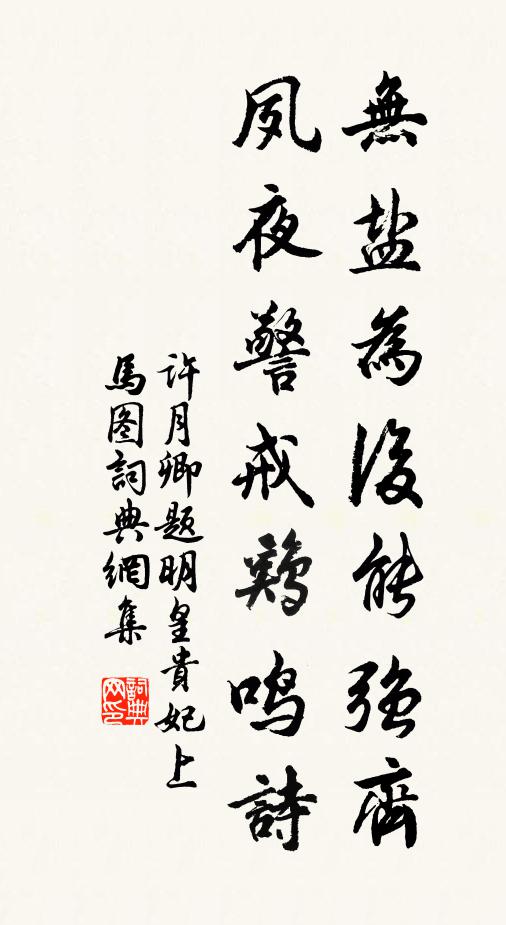 無盐為後能強齊
夙夜警戒鷄鳴詩
許月卿題明皇貴妃上
馬图詞典網集
詞典
网印